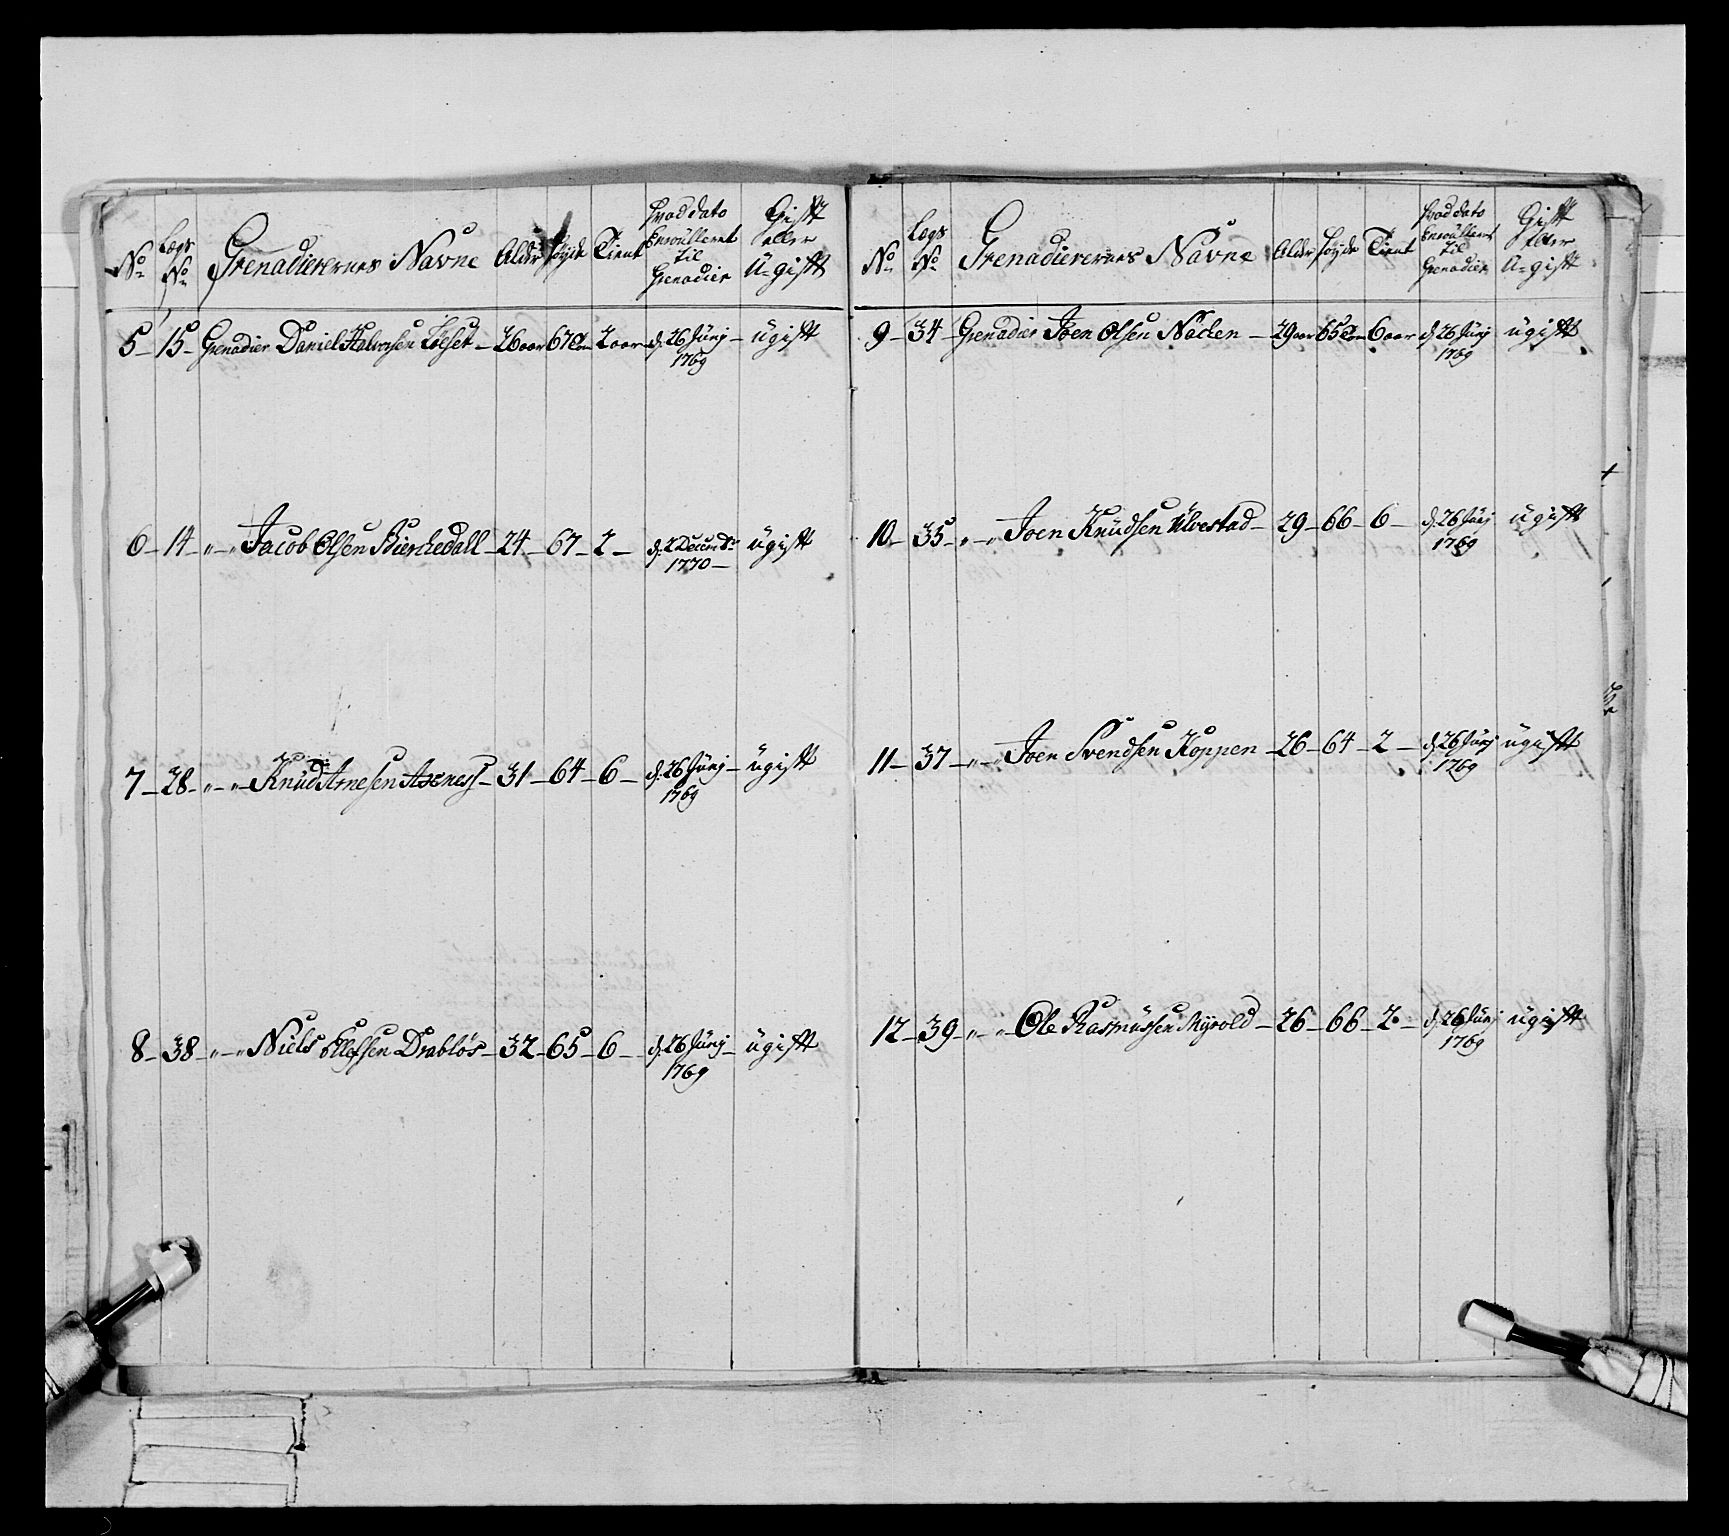 No Lægs No Grenadierernes Navne Alder Høyde Tient Hvad dato Enroulleret til Grenadier Gift eller U-gift
5 – 15 Grenadier Daniel Halvorsen Løeset – 26 aar 67 2 aar d. 26 Junj 1769 – ugift
6 – 14 – „ – „ Jacob Olsen Bierkedall – 24 – 67 – 2 – d. 2 Decembr 1770 – ugift
7 – 28 – „ – „ – Knud Arnesen Aarness – 31 – 64 – 6 – d. 26 Junj – 1769 ugift
8 – 38 – „ – „ – Niels Ellefsen Drabløs – 32 – 65 – 6 – d. 26 Junj – 1769 ugift
No Lægs No Grenadierernes Navne Alder Høyde Tient Hvad dato Enroulleret til Grenadier Gift eller U-gift
9 – 34 – Grenadier Joen Olsen – 29 aar 65 6 aar d. 26 Junj 1769 ugift
10 – 35 – „ – „ – Joen Knudsen Ulvestad – 29 – 66 – 6 – d. 26 Junj 1769 ugift
11 – 37 – „ – „ – Joen Svendsen Koppen – 26 – 64 – 2 – d. 26 Junj 1769 ugift
12 – 39 – „ – „ – Ole Rasmussen Myrold – 26 – 66 – 2 – d. 26 Junj 1769 ugift